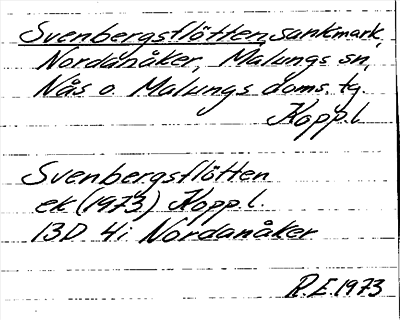 Svenbergsflötten, sankmark,
Nordanåker, Malungs sn,
Nås o. Malungs doms. tg
Kopp.l.
Svenbergsflötten
ek (1973) Kopp.l.
13D 4i Nordanåker
R.E. 1973